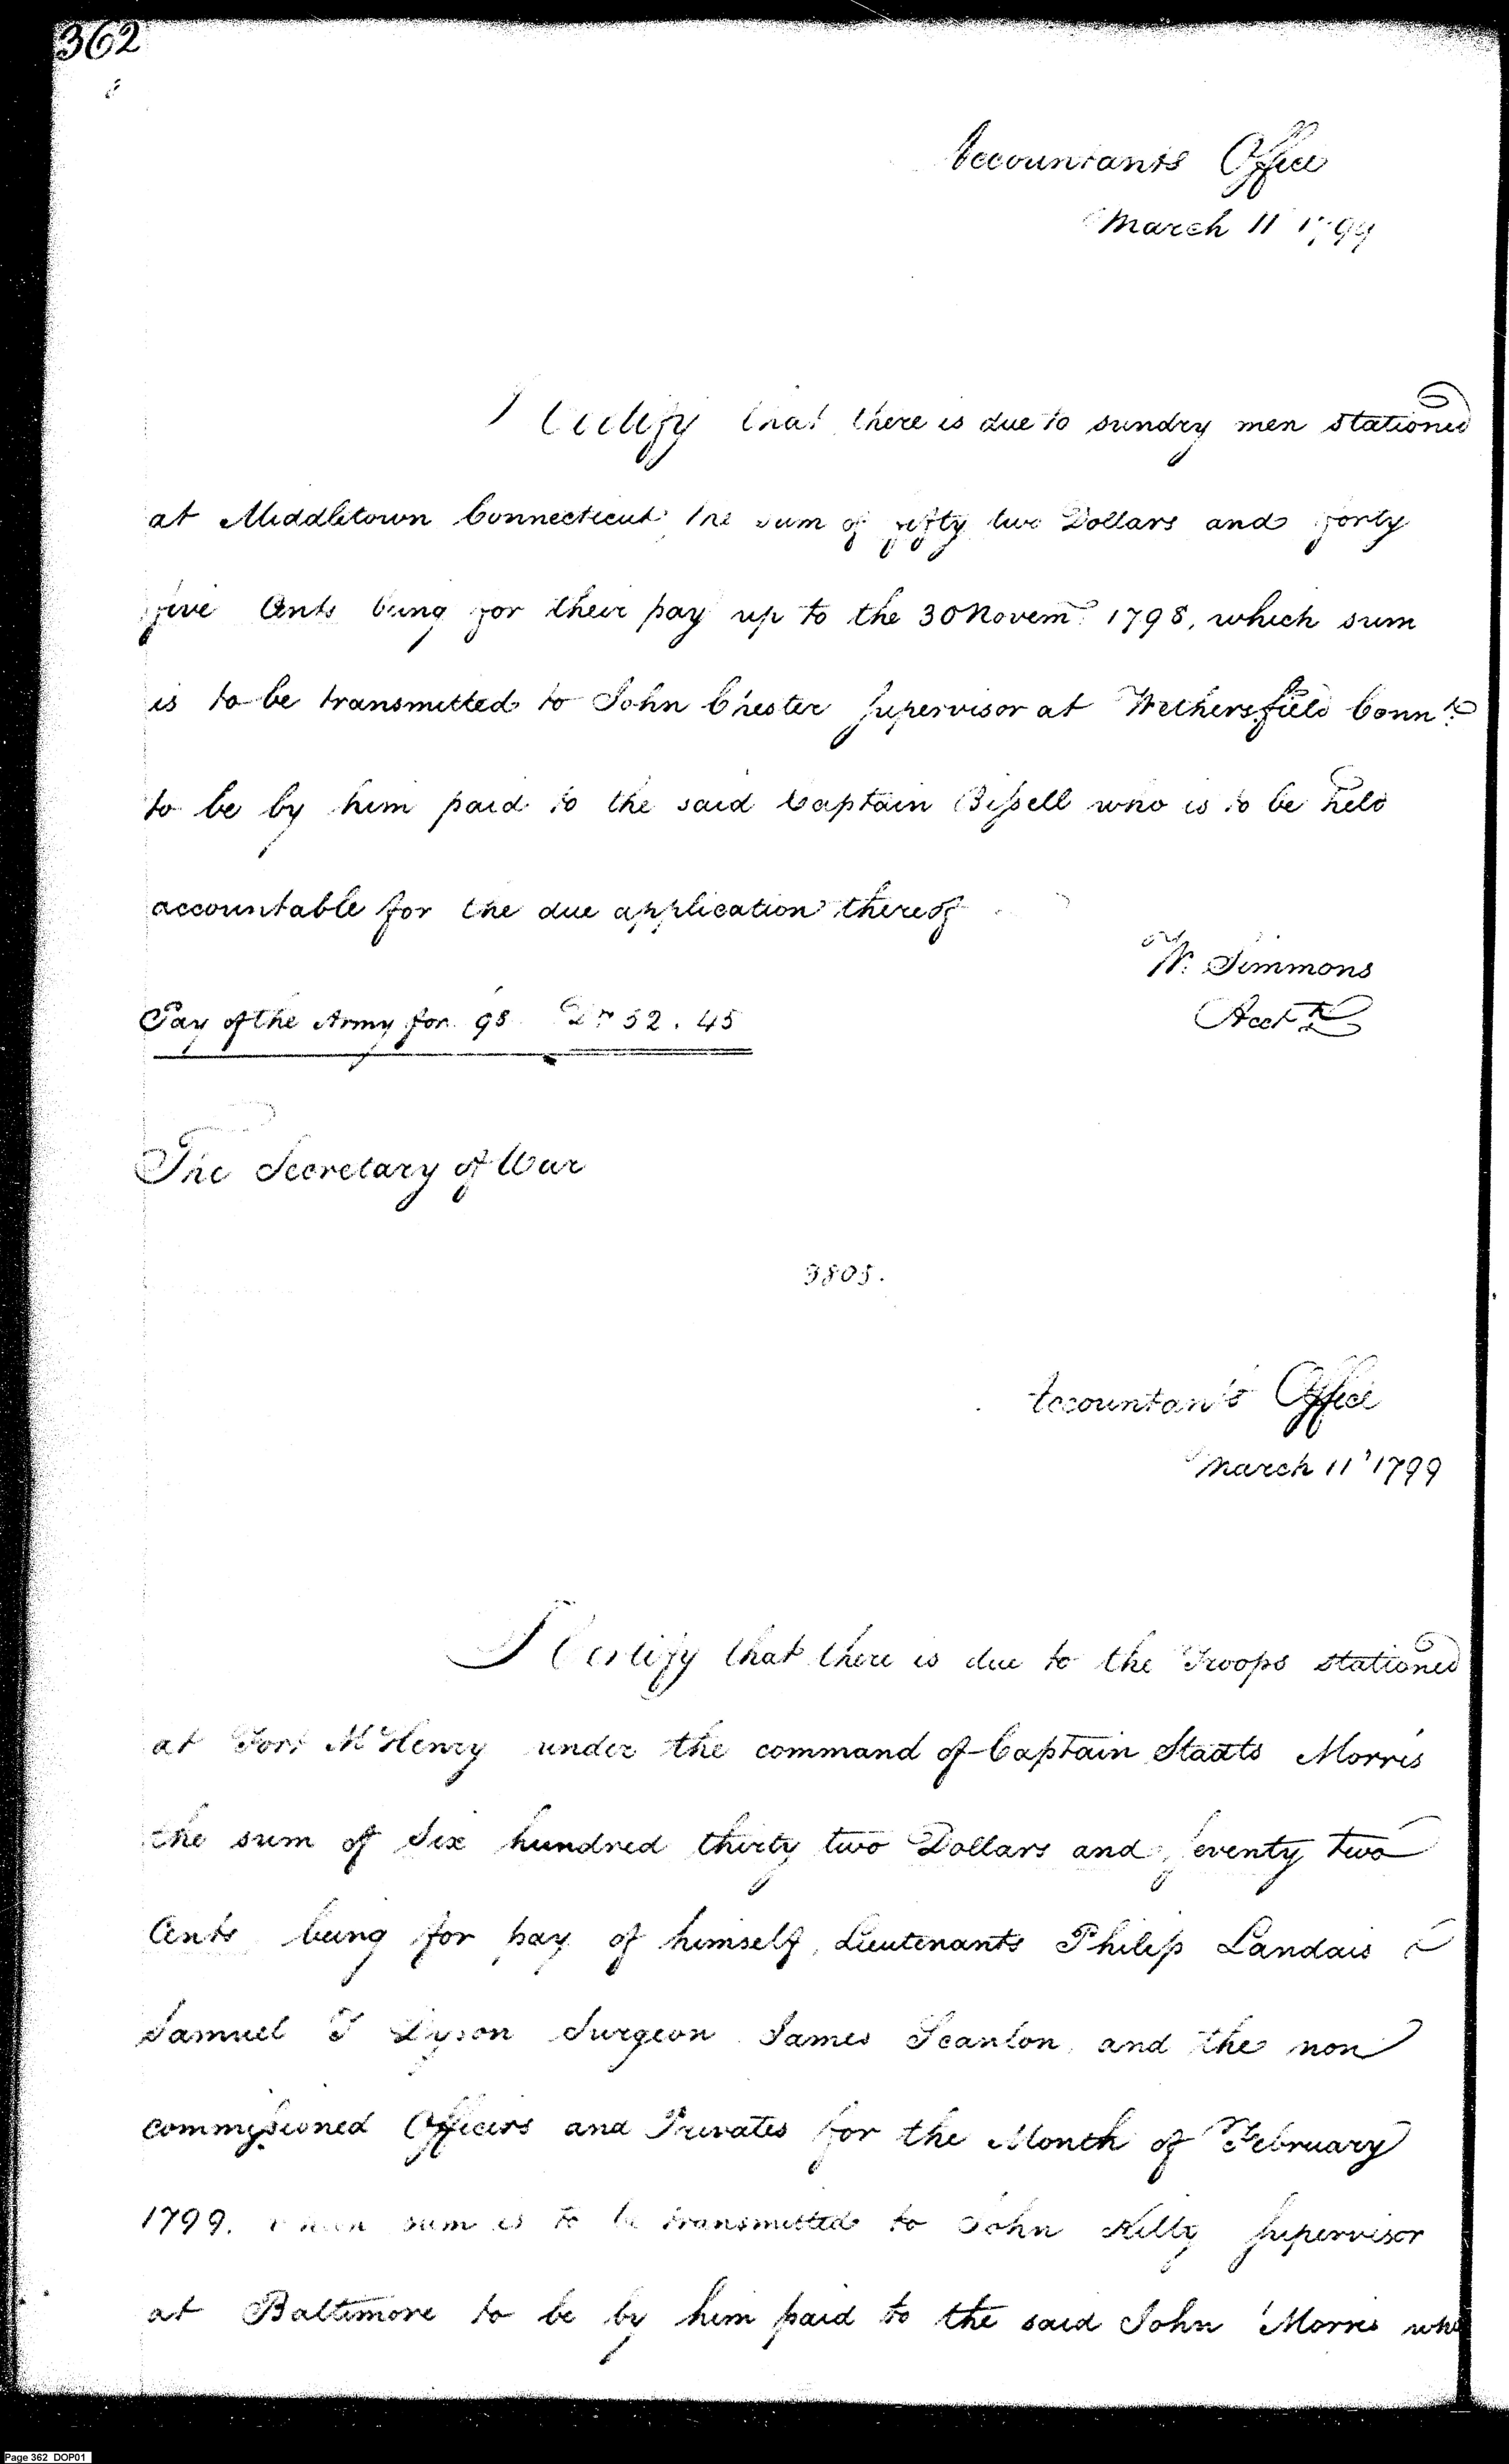 362
Accountants Office
March 11 1799
I Certify that there is due to sundry men stationed
at Middletown Connecticut the sum of fifty two Dollars and forty
five Cents being for their pay up to the 30 Novemr 1798, which sum
is to be transmitted to John Chester Supervisor at Wethersfield Connt
to be by him paid to the said Captain Bissell who is to be held
accountable for the due application thereof
W. Simmons
Acct
Pay of the Army for 98 Drs 52.45
The Secretary of War
3805.
Accountants Office
March 11 1799
I Certify that there is due to the Troops stationed
at Fort McHenry under the command of Captain Staats Morris
the sum of Six hundred thirty two Dollars and Seventy two
Cents being for pay of himself, Lieutenants Philip Landais &
Samuel T Dyson Surgeon James Scanlon and the non
commissioned Officers and Privates for the Month of February
1799. which sum is to be transmitted to John Kilty Supervisor
at Baltimore to be by him paid to the said John Morris who
Page 362 DOP01